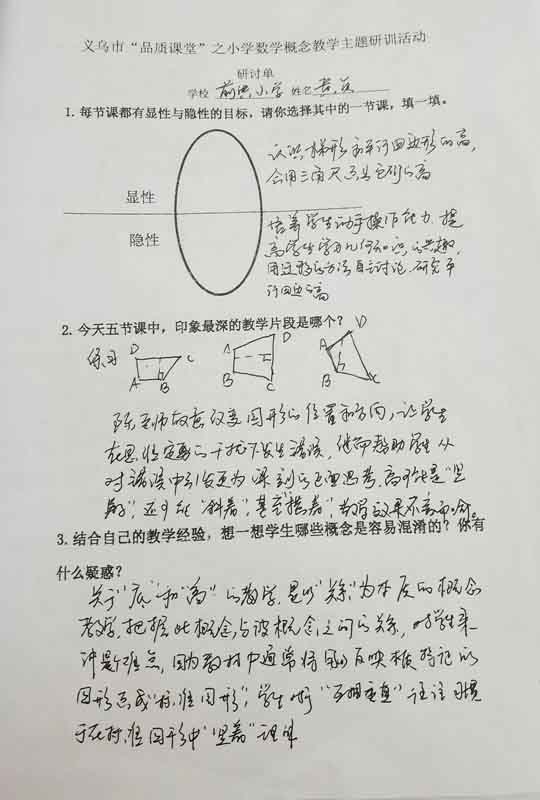 义乌市“品质课堂”之小学数学概念教学主题研训活动
研讨单
学校 前洪小学 姓名
1. 每节课都有显性与隐性的目标，请你选择其中的一节课，填一填。
认识梯形和平行四边形的高，
会用三角尺画出它们的高
显性
隐性
培养学生动手操作能力，提
高学生学习几何知识的兴趣，
用迁移的方法自主讨论、研究平
行四边的高
2. 今天五节课中，印象最深的教学片段是哪个？
练习
D C A B h
A D B C
A D B C h
陈老师故意改变图形的位置和方向，让学生
在思维定势的干扰下发生错误，继而帮助学生从
对错误中引发更为深刻的全面思考，高可能是“竖
着”，还可能“斜着”，甚至“横着”，教学效果不言而喻。
3. 结合自己的教学经验，想一想学生哪些概念是容易混淆的？你有
什么疑惑？
关于“底”和“高”的教学，是以“关系”为本质的概念
教学，把握此概念与彼概念之间的关系，对学生来
讲是个难点，因为教材中通常将反映概念的
图形画成“标准图形”，学生对“互相垂直”往往习惯
于在标准图形中“竖着”理解